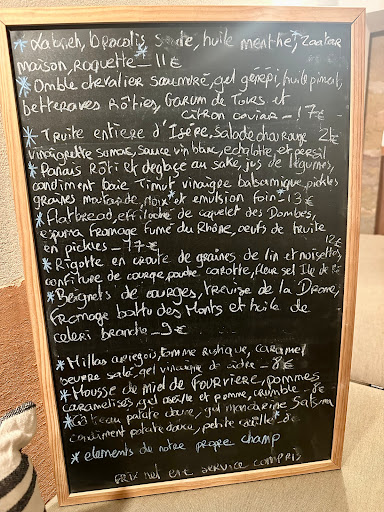 * Labneh, brocolis, huile menthe, Zaatar
maison, Roquette - 11€
* Omble chevalier saumuré, gel génépi, huile piment,
betteraves Rôties, Garum de Tours et
citron caviar - 17€
* Truite entière d'Isère, Salade chou rouge 21€
vinaigrette sumac, sauce vin blanc, echalotte et persil
* Panais Rôti et deglacé au saké, jus de légumes,
condiment baie Timut vinaigre balsamique, pickles
graines moutarde, noix* et emulsion foin - 13€
* Flatbread, effiloché de canard des Dombes,
espuma fromage fumé du Rhône, oeufs de truite
en pickles - 17€
12€
* Rigotte en croute de graines de lin et noisettes,
confiture de courge, poudre carotte, fleur sel Ile de Ré
* Beignets de courges, trevise de la Drome,
Fromage battu des Monts et huile de
celeri branche - 9€
* Millas ariegeois, tomme Rustique, caramel
beurre salé, gel vinaigre de cidre - 8€
* Mousse de miel de Fourvière, pommes
caramelisées, gel oseille et pomme, crumble - 8€
* Gâteau patate douce, gel mandarine Satsuma
condiment patate douce, petite oseille* - 8€
* elements de notre propre champ
PRIX net et service compris